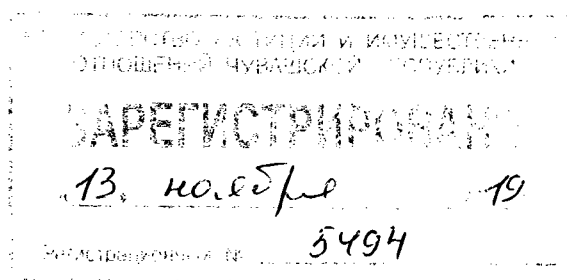 И ИМУЩЕСТВЕНН
ОТНОШЕНИЙ ЧУВАШСКОЙ РЕСПУБЛИКИ
ЗАРЕГИСТРИРОВАНО
13. ноября 19
Регистрационный № 5494